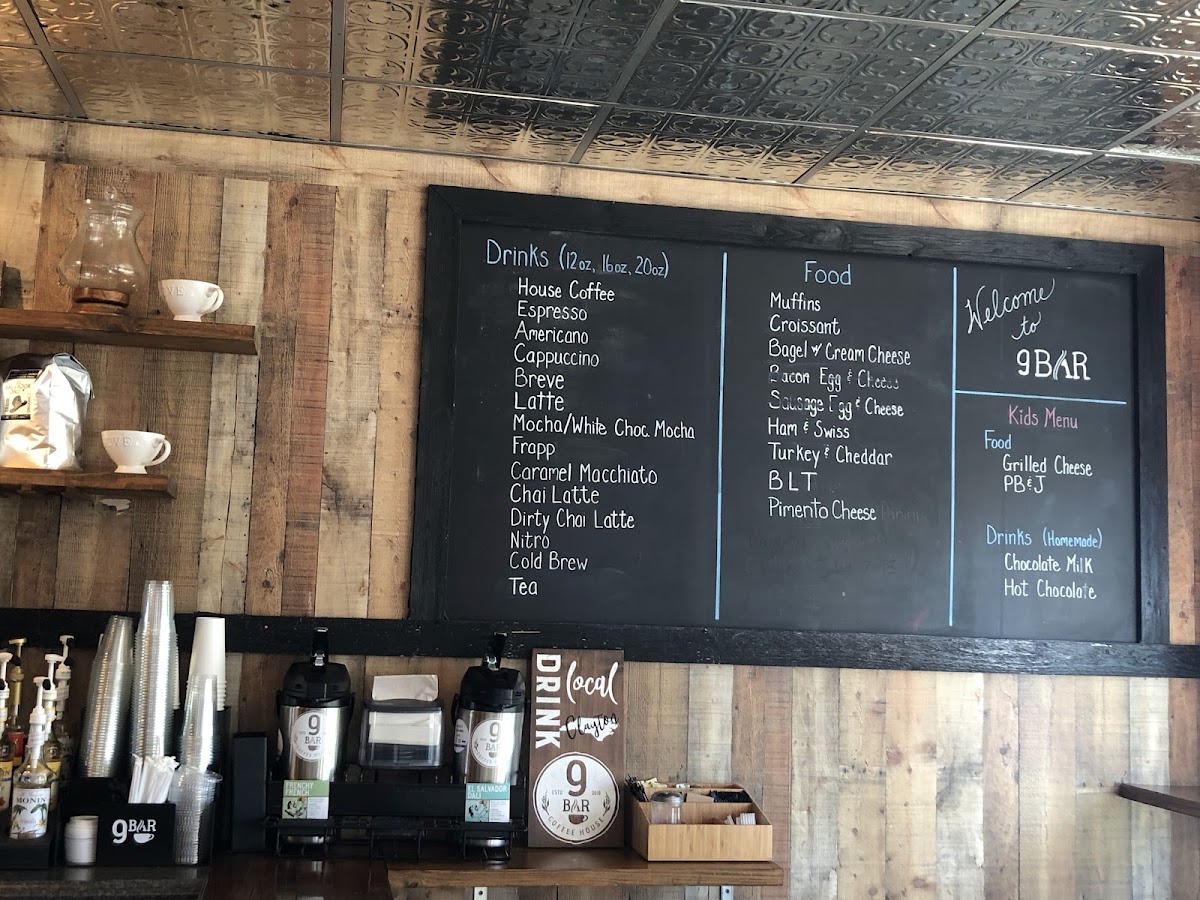 Drinks (12oz, 16oz, 20oz)
House Coffee
Espresso
Americano
Cappuccino
Breve
Latte
Mocha/White Choc. Mocha
Frapp
Caramel Macchiato
Chai Latte
Dirty Chai Latte
Nitro
Cold Brew
Tea
Food
Muffins
Croissant
Bagel w/ Cream Cheese
Bacon Egg & Cheese
Sausage Egg & Cheese
Ham & Swiss
Turkey & Cheddar
BLT
Pimento Cheese
Welcome
to
9BAR
Kids Menu
Food
Grilled Cheese
PB&J
Drinks (Homemade)
Chocolate Milk
Hot Chocolate
9
BAR
FRENCHY
FRENCH
9
BAR
EL SALVADOR
DALI
DRINK
local
Clayton
ESTD 2018
9
BAR
COFFEE HOUSE
9BAR
MONIN